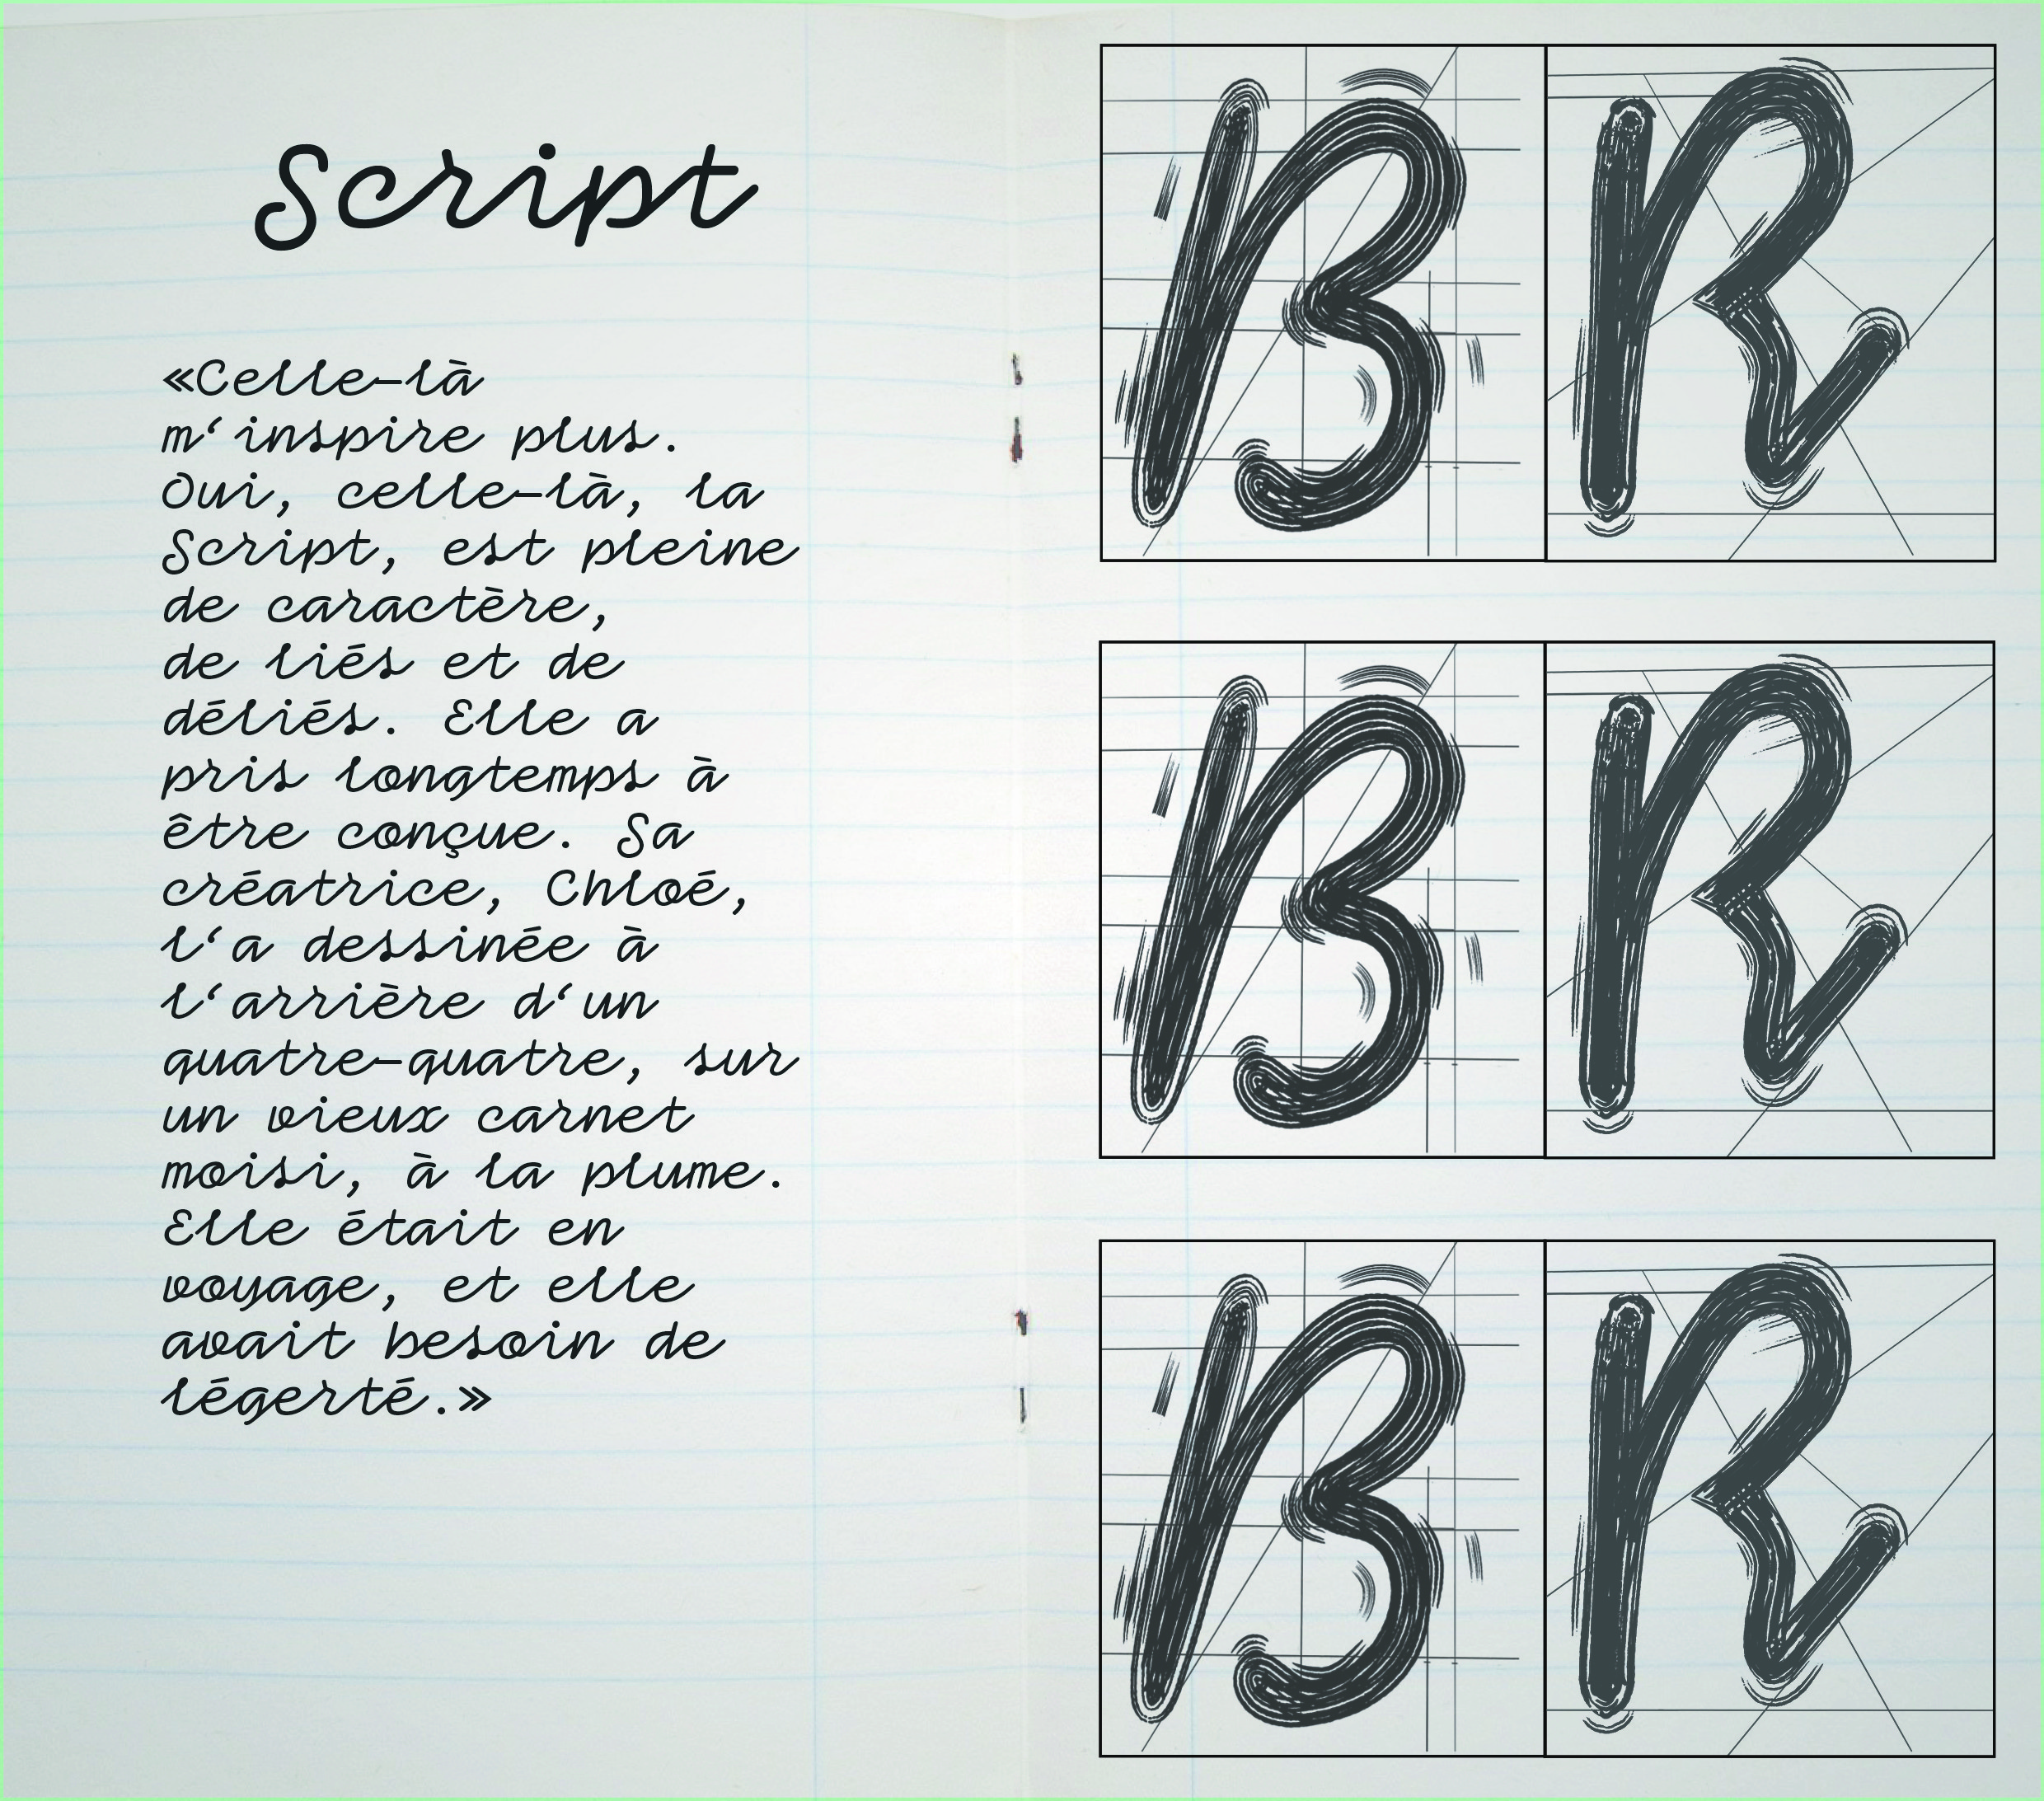 Script
«Celle-là
m‘inspire plus.
Oui, celle-là, la
Script, est pleine
de caractère,
de liés et de
déliés. Elle a
pris longtemps à
être conçue. Sa
créatrice, Chloé,
l‘a dessinée à
l‘arrière d‘un
quatre-quatre, sur
un vieux carnet
moisi, à la plume.
Elle était en
voyage, et elle
avait besoin de
légerté.»
B R
B R
B R